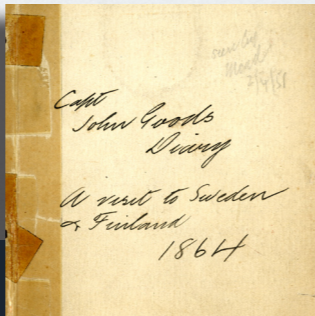 seen by
Capt
John Goods
Diary
A visit to Sweden
& Finland
1864